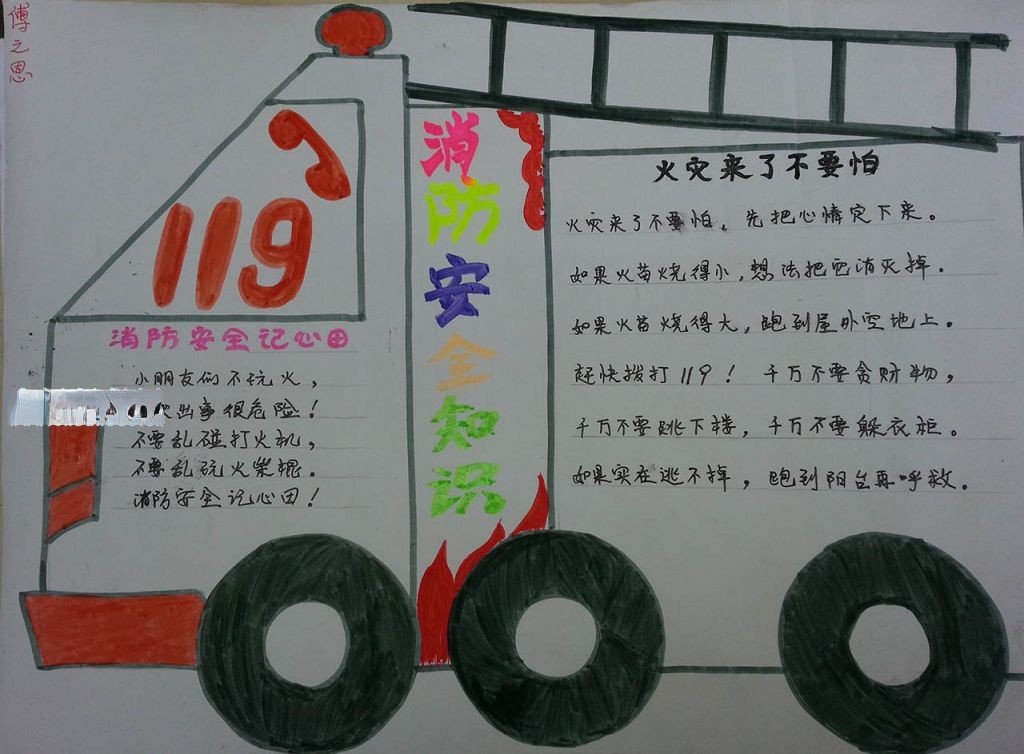 傅之恩
119
消防安全记心田
小朋友们不玩火，
出事很危险！
不要乱碰打火机，
不要乱玩火柴棍。
消防安全记心田！
消防安全知识
火灾来了不要怕
火灾来了不要怕，先把心情定下来。
如果火苗烧得小，想法把它消灭掉。
如果火苗烧得大，跑到屋外空地上。
赶快拨打119！ 千万不要贪财物，
千万不要跳下楼，千万不要躲衣柜。
如果实在逃不掉，跑到阳台再呼救。